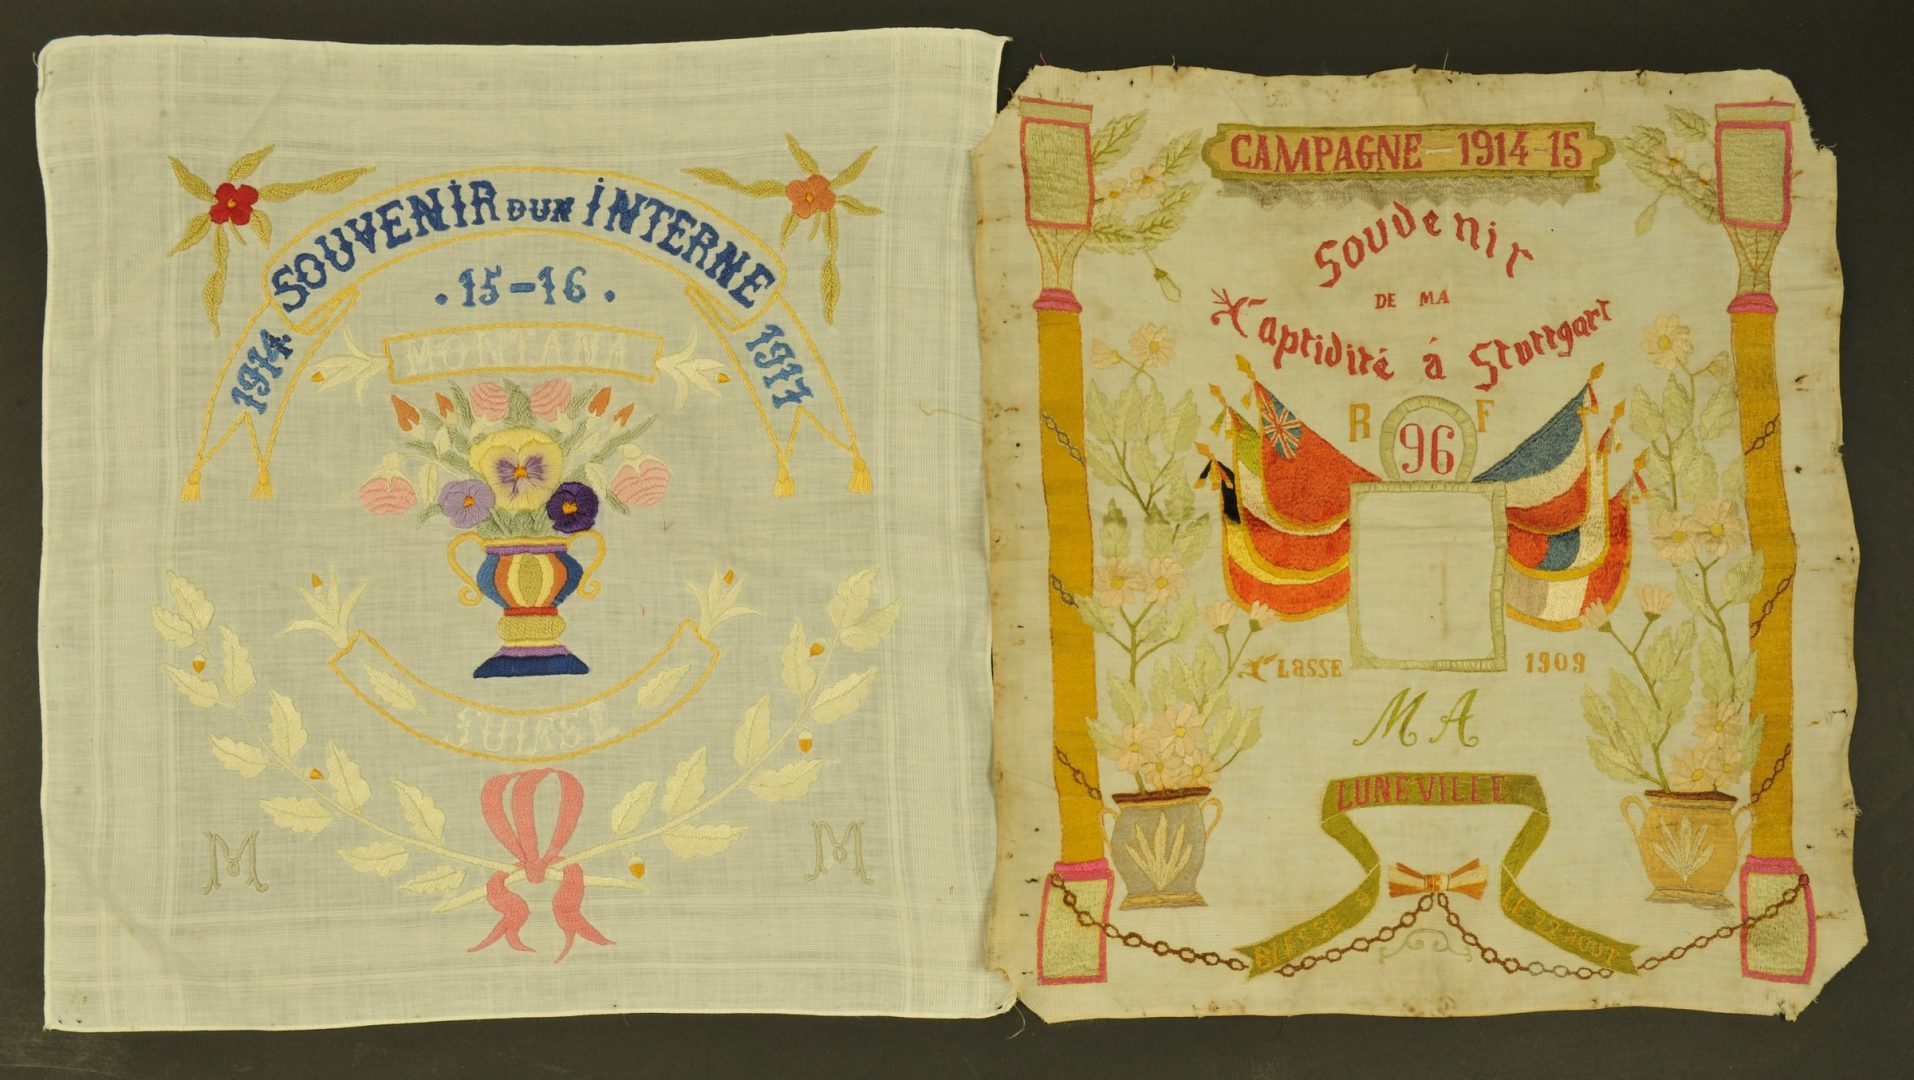 SOUVENIR DUN INTERNE
1914 . 15-16 . 1917
MONTANA
SUISSE
M M
CAMPAGNE - 1914-15
Souvenir
DE MA
Captidité á Stuttgart
R F
96
Classe 1909
MA
LUNEVILLE
BLESSÉ à
LE 22 AOUT